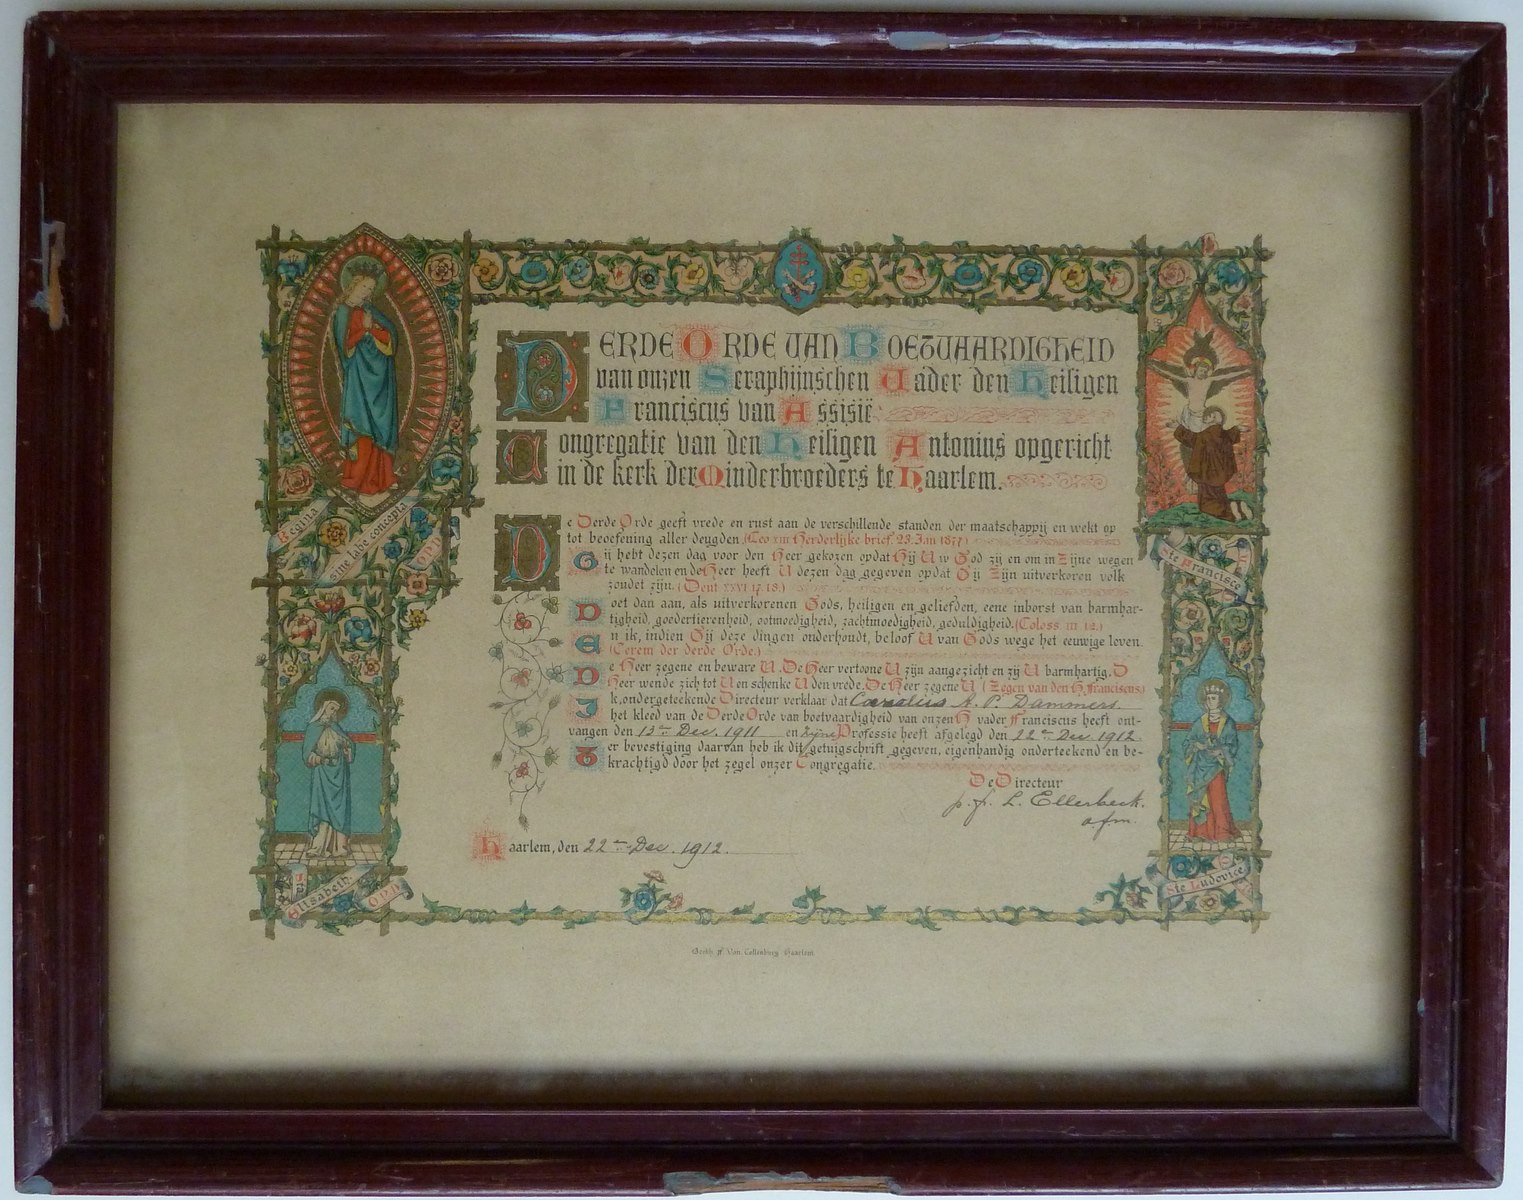 DERDE ORDE VAN BOETVAARDIGHEID
van onzen Seraphijnschen Vader den Heiligen
Franciscus van Assisië
Congregatie van den Heiligen Antonius opgericht
in de kerk der Minderbroeders te Haarlem.
Regina
sine labe concepta
O.P.N.
De Derde Orde geeft vrede en rust aan de verschillende standen der maatschappij en wekt op
tot beoefening aller deugden (Leo XIII Herderlijke brief. 23. Jan 1877)
Gij hebt dezen dag voor den Heer gekozen opdat Hij Uw God zij en om in Zijne wegen
te wandelen en de Heer heeft U dezen dag gegeven opdat Gij Zijn uitverkoren volk
zoudet zijn. (Deut XXVI 17. 18.)
Ste Francisce
Doet dan aan, als uitverkorenen Gods, heiligen en geliefden, eene inborst van barmhar-
tigheid, goedertierenheid, ootmoedigheid, zachtmoedigheid, geduldigheid. (Coloss. III 12.)
En ik, indien Gij deze dingen onderhoudt, beloof U van Gods wege het eeuwige leven.
(Cerem der derde Orde.)
De Heer zegene en beware U. De Heer vertoone U zijn aangezicht en zij U barmhartig. D
Heer wende zich tot U en schenke U den vrede. De Heer zegene U (Zegen van den H. Franciscus)
Ik, ondergeteekende Directeur verklaar dat Cornelius A. P. Dammers.
het kleed van de Derde Orde van boetvaardigheid van onzen H vader Franciscus heeft ont-
vangen den 13en Dec. 1911 en zijne Professie heeft afgelegd den 22en Dec 1912.
Ter bevestiging daarvan heb ik dit getuigschrift gegeven, eigenhandig onderteekend en be-
krachtigd door het zegel onzer Congregatie.
De Directeur
p. fr. L. Ellerbeck.
ofm.
Haarlem, den 22en Dec. 1912.
Sta Elisabeth.
O.P.N.
Ste Ludovice
Haarlem